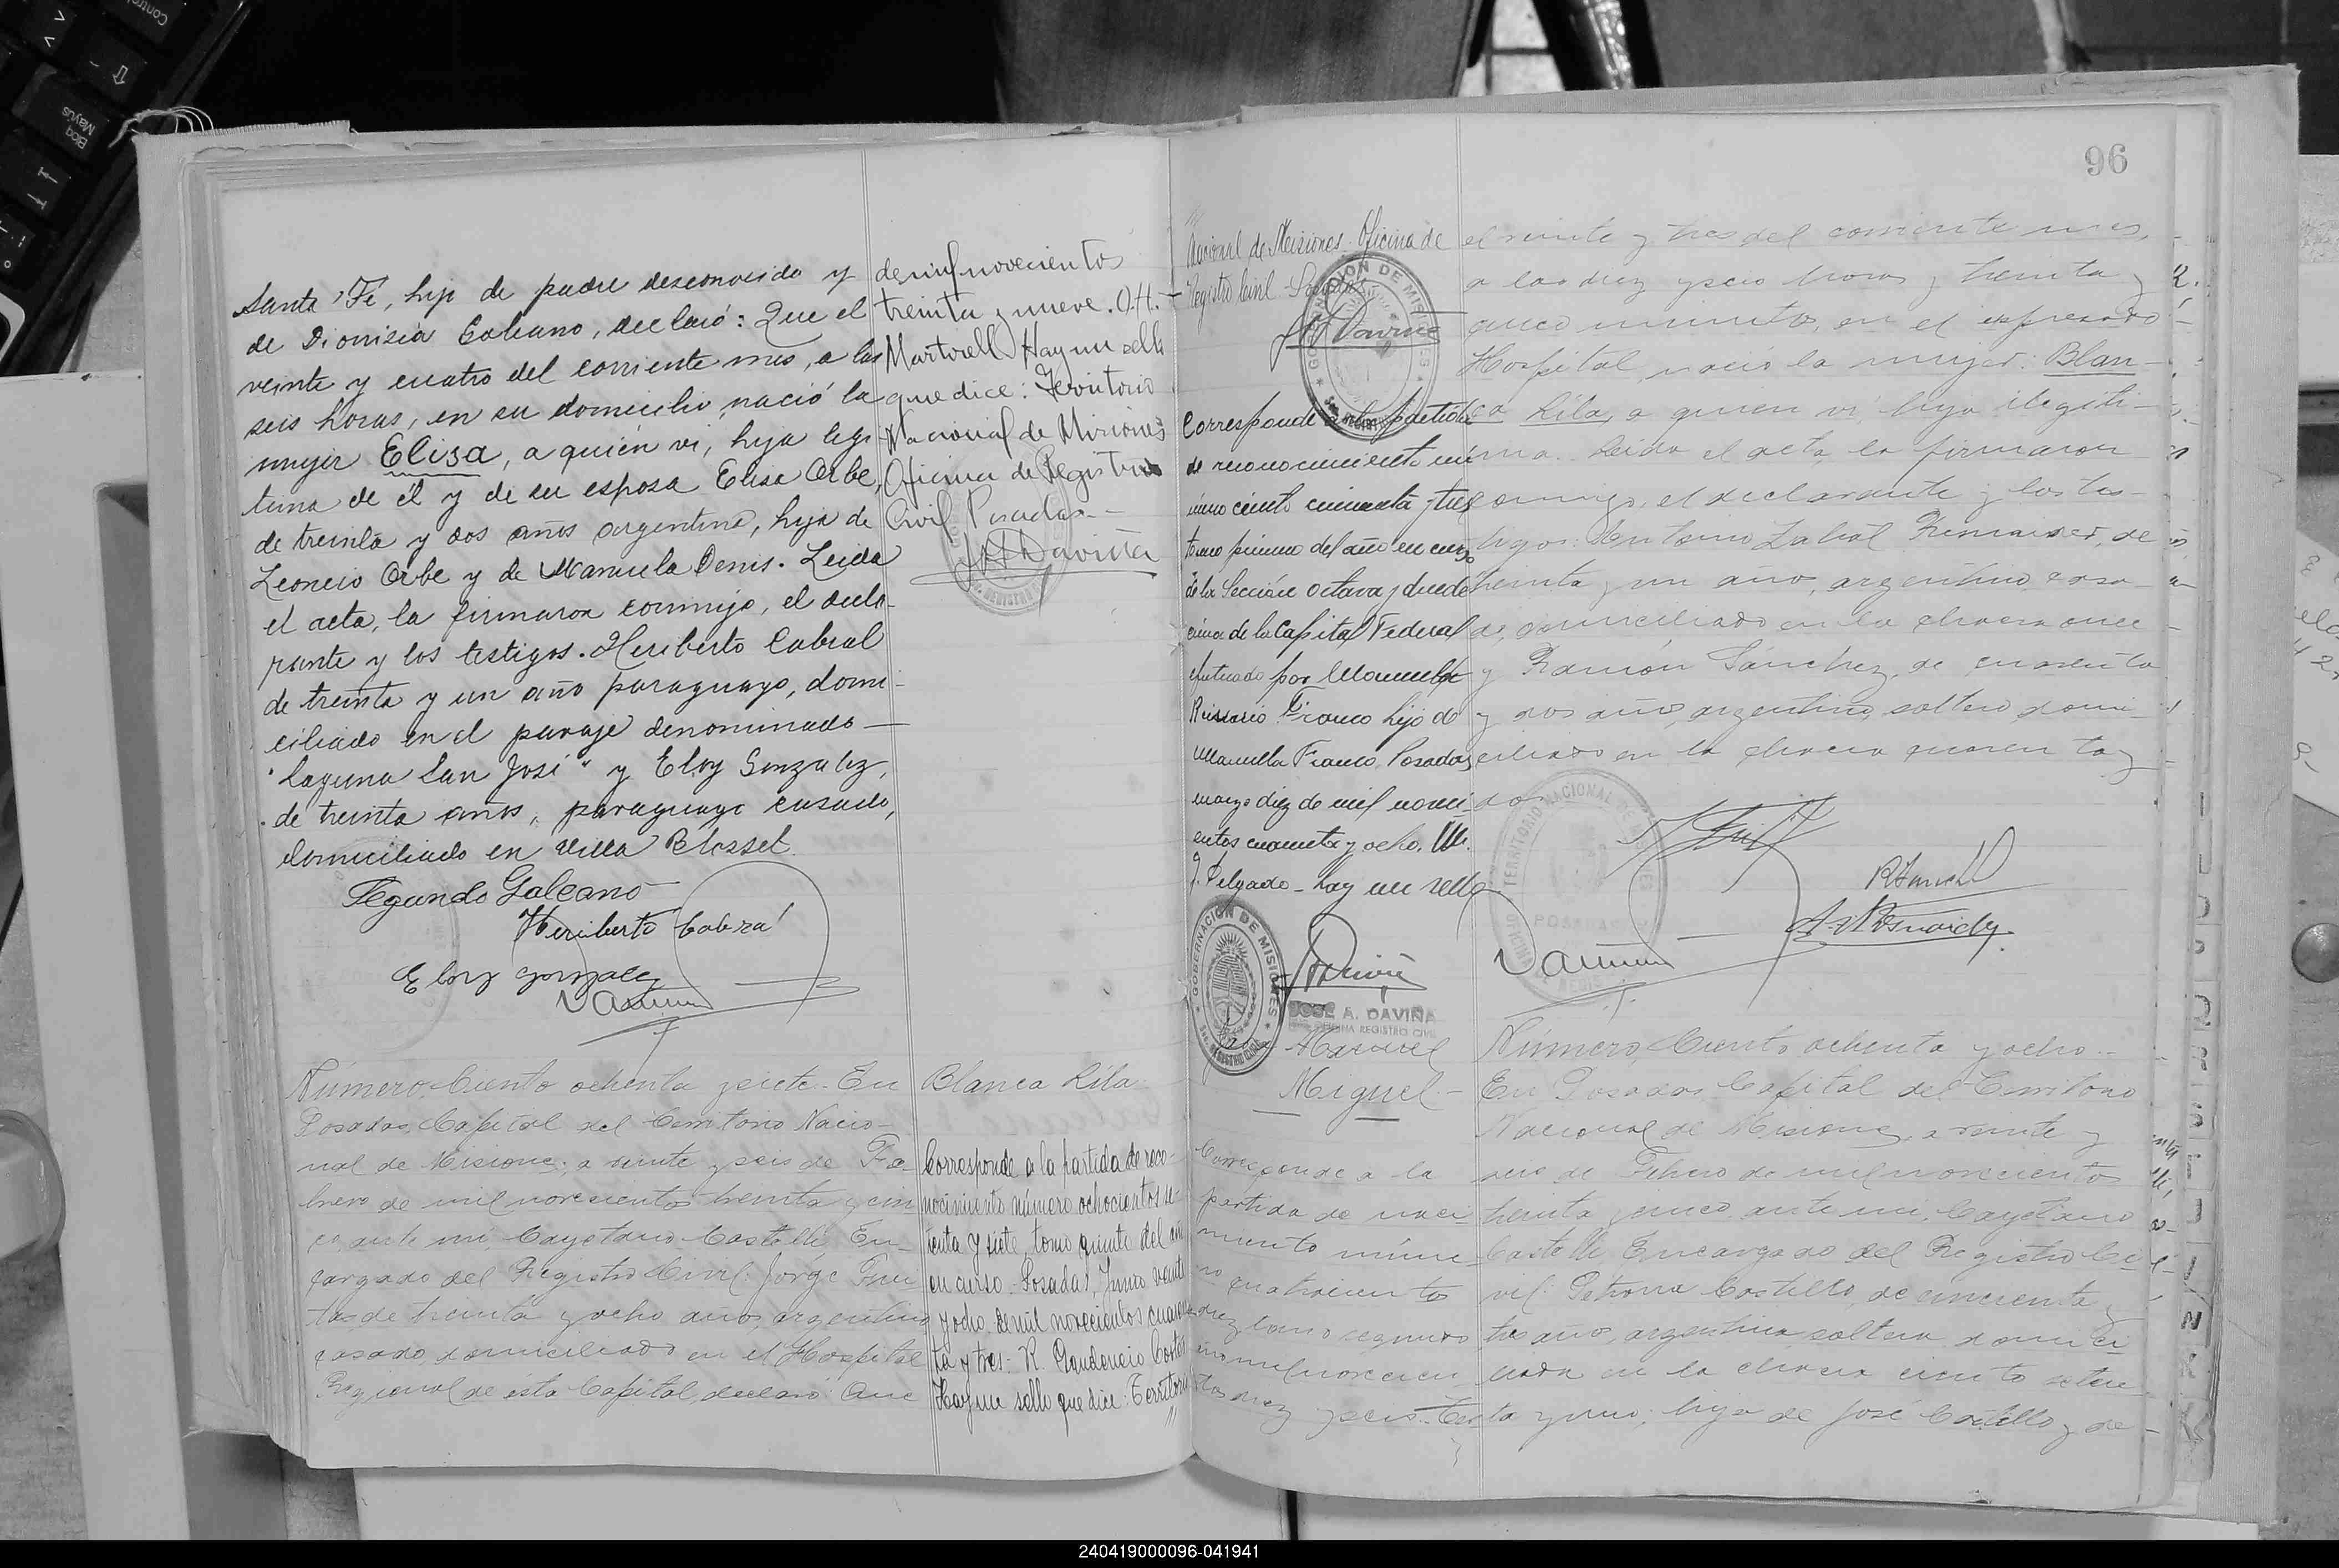 Santa Fe, hijo de padre desconocido y
de Dionisia Galeano, declaró: Que el
veinte y cuatro del corriente mes, a las
seis horas, en su domicilio, nació la
mujer Elisa, a quién vi, hija legi-
tima de él y de su esposa Elisa Orbe,
de treinta y dos años argentina, hija de
Leoncio Orbe y de Manuela Denis. Leida
el acta, la firmaron conmigo, el decla-
rante y los testigos. Heriberto Cabral
de treinta y un año paraguayo, domi-
ciliado en el paraje denominado
"Laguna San José" y Eloy Gonzalez,
de treinta años, paraguayo casado,
domiciliado en Villa Blosset.
Segundo Galeano
Heriberto Cabral
Eloy Gonzalez
de mil novecientos
treinta y nueve. O.H.
Martorell Hay un sello
que dice: Territorio
Nacional de Misiones
Oficina de Registro
Civil Posadas
Número Ciento ochenta y siete. En
Posadas, Capital del Territorio Nacio-
nal de Misiones, a veinte y seis de Fe-
brero de mil novecientos treinta y cin-
co, ante mi, Cayetano Castelli, En-
cargado del Registro Civil: Jorge
de treinta y ocho años, argentino
casado, domiciliado en el Hospital
Regional de ésta Capital, declaró: Que
Blanca Lila
Corresponde a la partida de reco-
nocimiento número ochocientos se-
senta y siete, tomo quinto del año
en curso. Posadas, Junio veinte
y ocho de mil novecientos cuaren-
ta y tres. R. Gaudencio Cortes
Hay un sello que dice: Territorio
96
Nacional de Misiones. Oficina de
Registro Civil - Posadas
GOBERNACION DE MISIONES
Corresponde a la partida
de reconocimiento nú-
mero ciento cincuenta y tres
tomo primero del año en curso
de la Sección Octava y duodé-
cima de la Capital Federal
efectuado por Manuela
Franco hijo de
Manuela Franco. Posadas
marzo diez de mil noveci-
entos cuarenta y ocho. M.
J. Delgado - hay un sello
GOBERNACION DE MISIONES
JOSE A. DAVIÑA
REGISTRO CIVIL
el veinte y tres del corriente mes,
a las diez y seis horas y treinta y
cinco minutos, en el expresado
Hospital, nació la mujer: Blan-
ca Lila, a quien vi, hija ilegiti-
ma. Leida el acta, la firmaron
conmigo, el declarante y los tes-
tigos: Antonio de
treinta y un año, argentino, casa-
do, domiciliado en la chacra once
y Ramón Sánchez, de cuarenta
y dos años, argentino, soltero, domi-
ciliado en la chacra cuarenta y
dos
TERRITORIO NACIONAL DE MISIONES
POSADAS
Manuel
Miguel
Corresponde a la
partida de naci-
miento núme-
ro cuatrocientos
diez tomo segundo
mil novecien
tos diez y seis.
Número Ciento ochenta y ocho.
En Posadas Capital del Territorio
Nacional de Misiones, a veinte y
seis de Febrero de mil novecientos
treinta y cinco, ante mi, Cayetano
Castelli, Encargado del Registro Ci-
vil: Petrona Castillo, de cincuenta y
tres años, argentina soltera domici-
liada en la chacra ciento seten-
ta y uno, hija de José Castillo y de
240419000096-041941